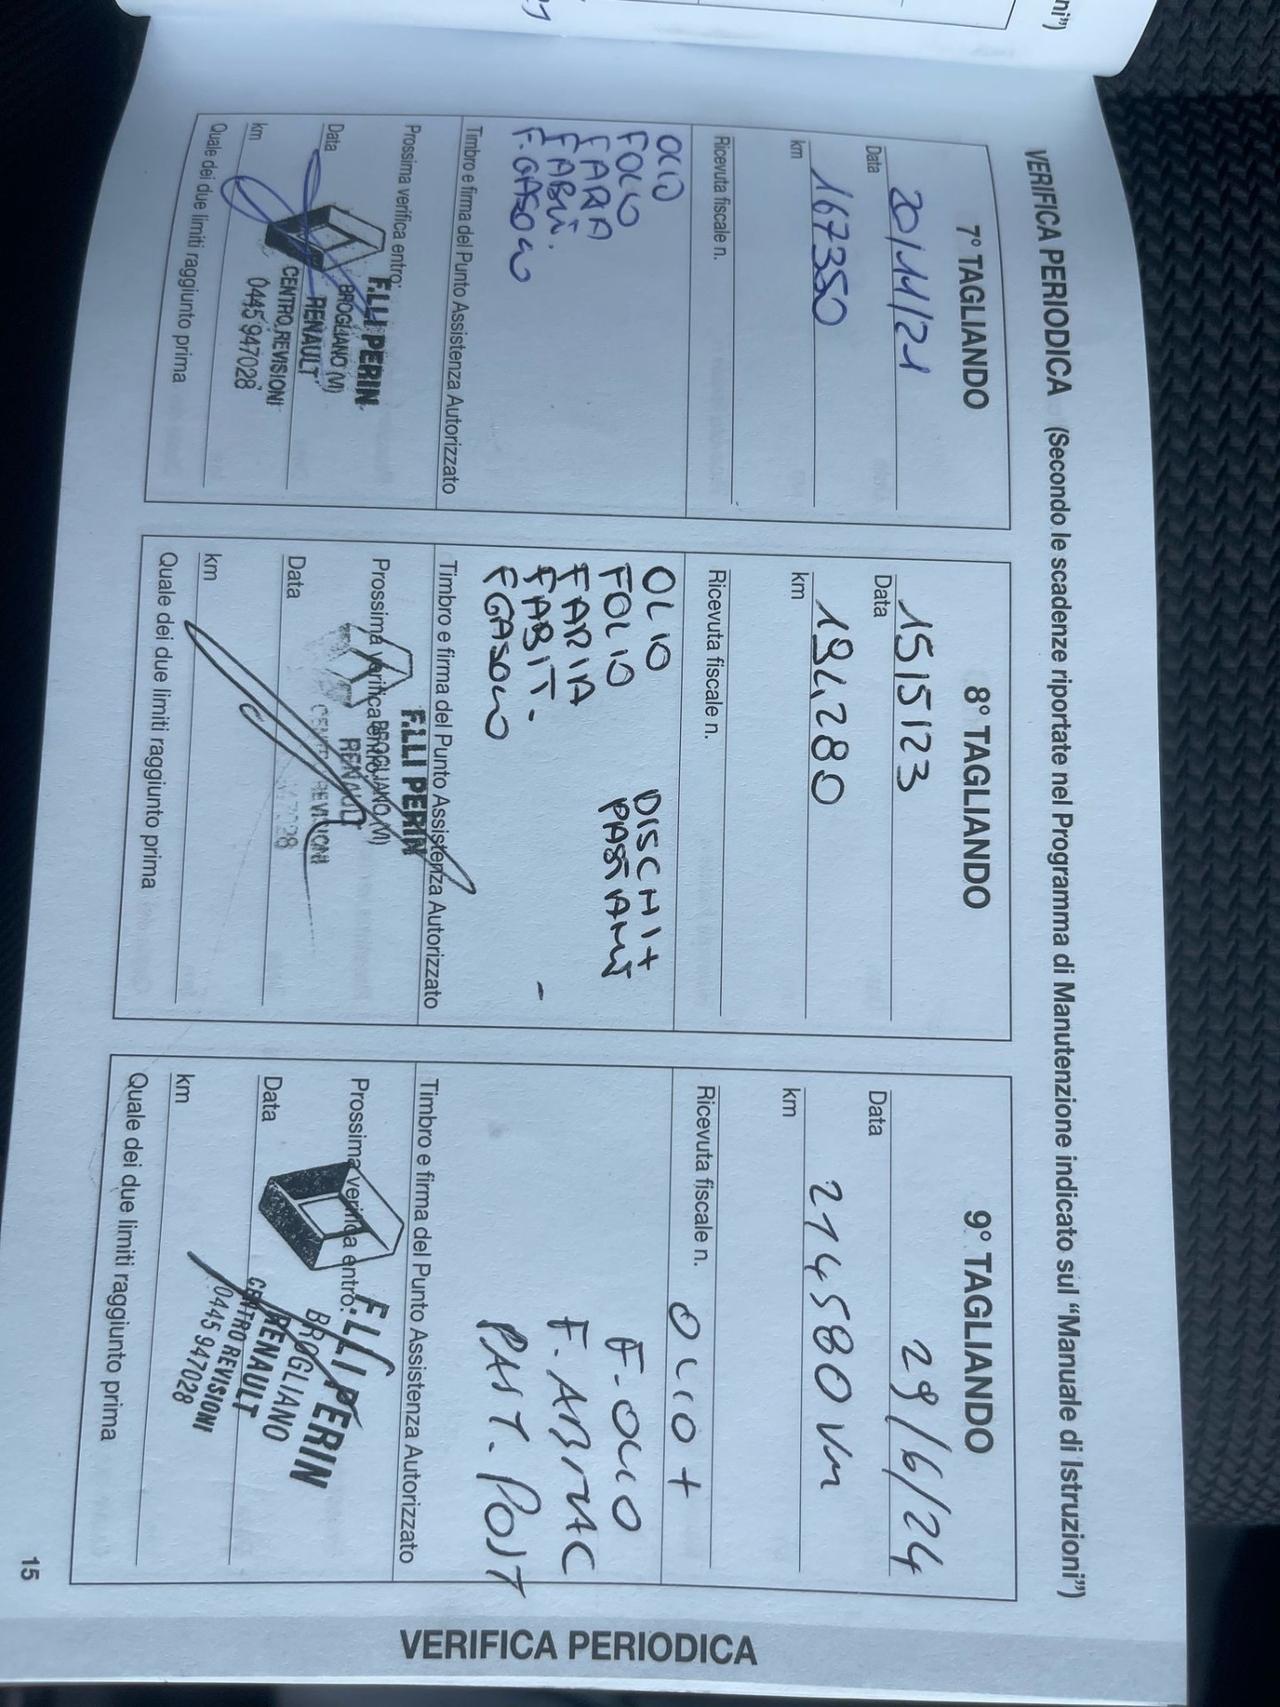 VERIFICA PERIODICA (Secondo le scadenze riportate nel Programma di Manutenzione indicato sul “Manuale di Istruzioni”)
7° TAGLIANDO
Data 20/11/21
km 167350
Ricevuta fiscale n.
OLIO
FOLIO
FARIA
FABIT.
F.GASOLIO
Timbro e firma del Punto Assistenza Autorizzato
Prossima verifica entro:
Data
km
Quale dei due limiti raggiunto prima
F.LLI PERIN
BROGLIANO (VI)
RENAULT
CENTRO REVISIONI
0445 947028
8° TAGLIANDO
Data 15/5/23
km 194.280
Ricevuta fiscale n.
OLIO DISCHI+
FOLIO PASTIANT
FARIA
FABIT.
FGASOLIO
Timbro e firma del Punto Assistenza Autorizzato
Prossima verifica entro:
Data
km
Quale dei due limiti raggiunto prima
F.LLI PERIN
BROGLIANO (VI)
RENAULT
CENTRO REVISIONI
9° TAGLIANDO
Data 29/6/24
km 214580 km
Ricevuta fiscale n.
OLIO +
F.OLIO
F. ABITAC
PAST. POST
Timbro e firma del Punto Assistenza Autorizzato
Prossima verifica entro:
Data
km
Quale dei due limiti raggiunto prima
F.LLI PERIN
BROGLIANO
RENAULT
CENTRO REVISIONI
0445 947028
15
VERIFICA PERIODICA